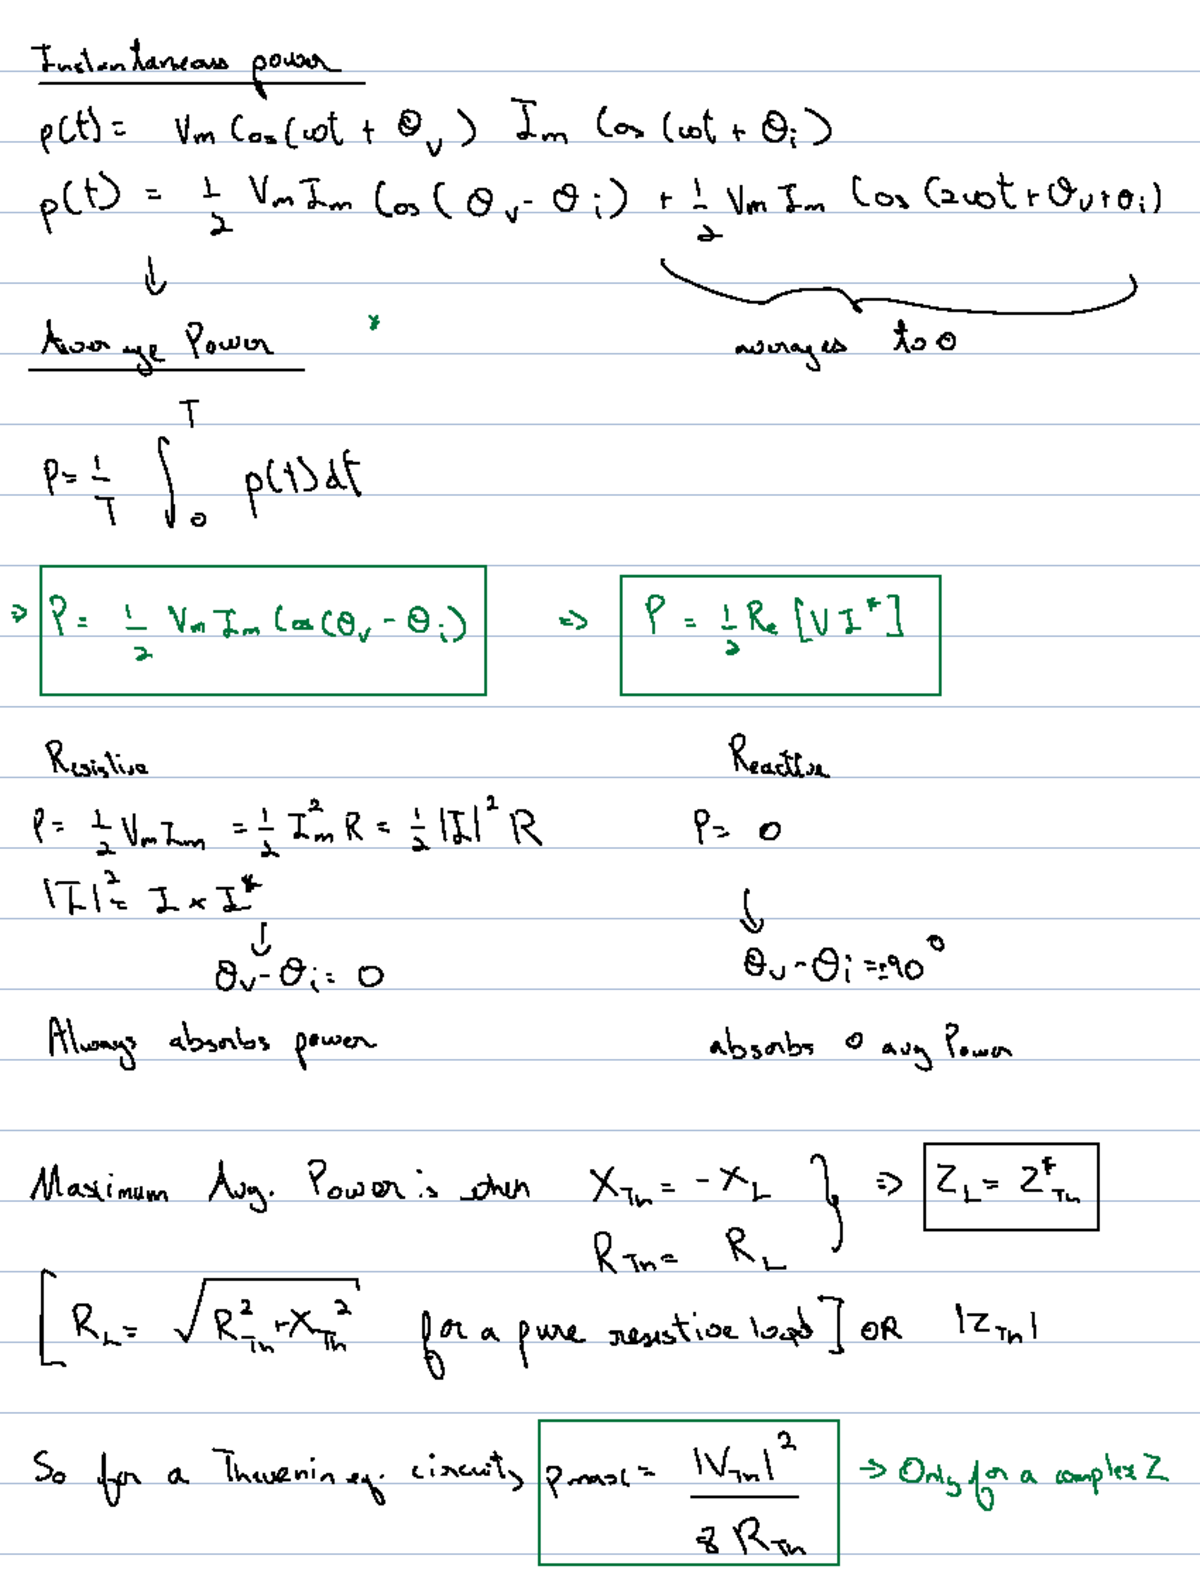 Instantaneous power
p(t) = Vm Cos(ωt + θv) Im Cos(ωt + θi)
p(t) = 1/2 Vm Im Cos(θv - θi) + 1/2 Vm Im Cos(2ωt + θv + θi)
↓
Average Power *
averages to 0
P = 1/T ∫₀ᵀ p(t)dt
⇒ P = 1/2 Vm Im Cos(θv - θi) ⇒ P = 1/2 Re [VI*]
Resistive Reactive
P = 1/2 Vm Im = 1/2 Im² R = 1/2 |I|² R P = 0
|I|² = I × I* ↓
↓
θv - θi = 0 θv - θi = ±90°
Always absorbs power absorbs 0 avg Power
Maximum Avg. Power is when XTh = -XL } ⇒ ZL = Z*Th
RTh = RL
[RL = √(R²Th + XTh²) for a pure resistive load] OR |ZTh|
So for a Thevenin eq. circuit, Pmax = |VTh|² / 8 RTh → Only for a complex Z